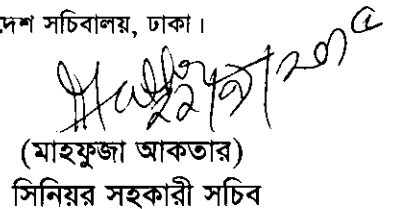 দেশ সচিবালয়, ঢাকা।
(মাহফুজা আকতার)
সিনিয়র সহকারী সচিব